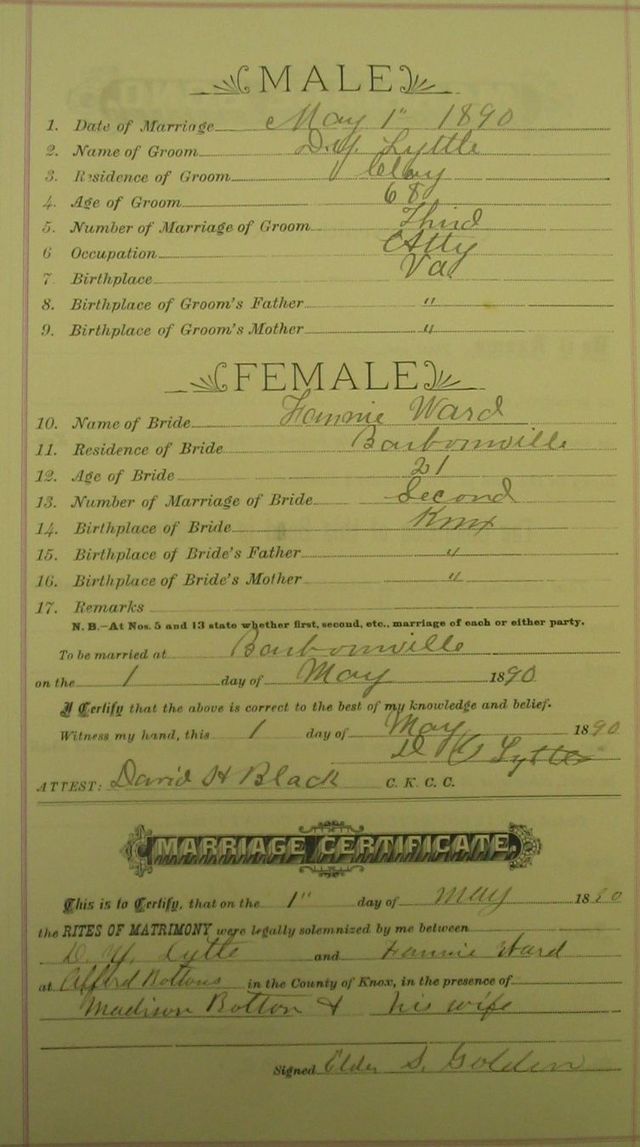 MALE
1. Date of Marriage May 1" 1890
2. Name of Groom D.Y. Lyttle
3. Residence of Groom Clay
4. Age of Groom 68
5. Number of Marriage of Groom Third
6 Occupation Atty
7. Birthplace Va
8. Birthplace of Groom's Father "
9. Birthplace of Groom's Mother "
FEMALE
10. Name of Bride Fannie Ward
11. Residence of Bride Barbourville
12. Age of Bride 21
13. Number of Marriage of Bride Second
14. Birthplace of Bride Knox
15. Birthplace of Bride's Father "
16. Birthplace of Bride's Mother "
17. Remarks
N. B.—At Nos. 5 and 13 state whether first, second, etc., marriage of each or either party.
To be married at Barbourville
on the 1 day of May 1890
I Certify that the above is correct to the best of my knowledge and belief.
Witness my hand, this 1 day of May 1890
D Y Lyttle
ATTEST: David H Black C. K. C. C.
MARRIAGE CERTIFICATE.
This is to Certify, that on the 1" day of May 1890
the RITES OF MATRIMONY were legally solemnized by me between
D. Y. Lyttle and Fannie Ward
at Bottons in the County of Knox, in the presence of
Madison Botton & his wife
Signed Elder S. Golden